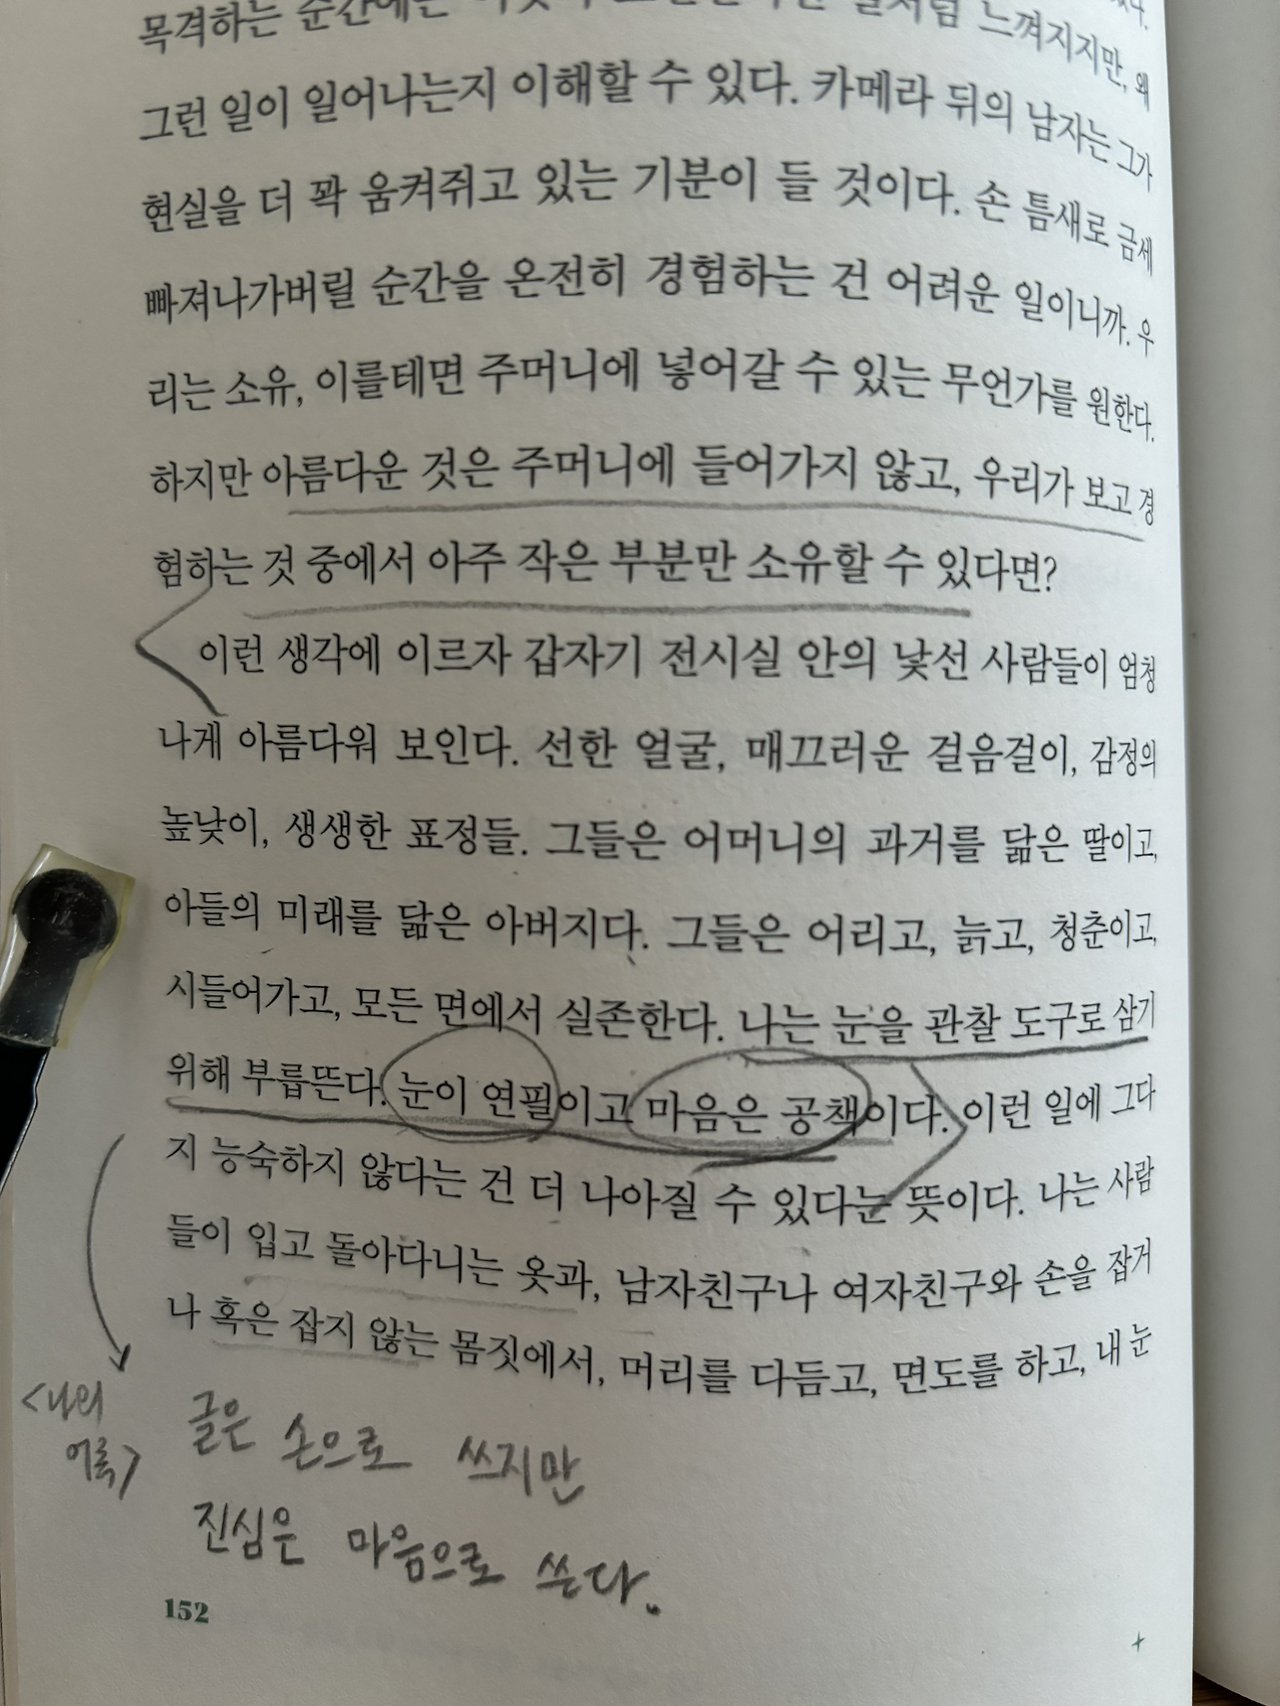 목격하는 순간에는 느껴지지만, 왜
그런 일이 일어나는지 이해할 수 있다. 카메라 뒤의 남자는 그가
현실을 더 꽉 움켜쥐고 있는 기분이 들 것이다. 손 틈새로 금세
빠져나가버릴 순간을 온전히 경험하는 건 어려운 일이니까. 우
리는 소유, 이를테면 주머니에 넣어갈 수 있는 무언가를 원한다.
하지만 아름다운 것은 주머니에 들어가지 않고, 우리가 보고 경
험하는 것 중에서 아주 작은 부분만 소유할 수 있다면?
이런 생각에 이르자 갑자기 전시실 안의 낯선 사람들이 엄청
나게 아름다워 보인다. 선한 얼굴, 매끄러운 걸음걸이, 감정의
높낮이, 생생한 표정들. 그들은 어머니의 과거를 닮은 딸이고,
아들의 미래를 닮은 아버지다. 그들은 어리고, 늙고, 청춘이고,
시들어가고, 모든 면에서 실존한다. 나는 눈을 관찰 도구로 삼기
위해 부릅뜬다. 눈이 연필이고 마음은 공책이다. 이런 일에 그다
지 능숙하지 않다는 건 더 나아질 수 있다는 뜻이다. 나는 사람
들이 입고 돌아다니는 옷과, 남자친구나 여자친구와 손을 잡거
나 혹은 잡지 않는 몸짓에서, 머리를 다듬고, 면도를 하고, 내 눈
<나의
어록>
글은 손으로 쓰지만
진심은 마음으로 쓴다.
152